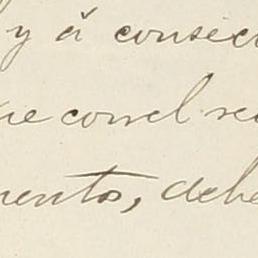 y á consec
ue con el se
mentos, debe